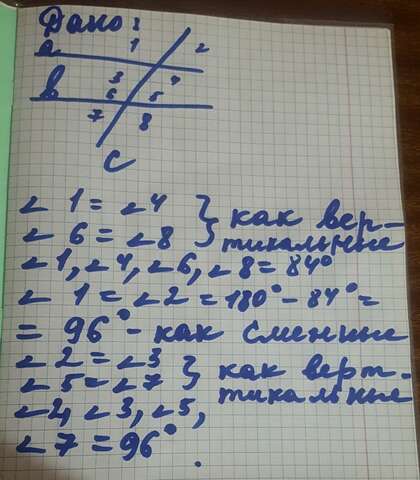 Дано:
a 1 2
3 4
b 6 5
7 8
c
∠1 = ∠4 } как вер-
∠6 = ∠8 } тикальные
∠1, ∠4, ∠6, ∠8 = 84°
∠1 = ∠2 = 180° - 84° =
= 96° - как сменные
∠2 = ∠3 } как верт-
∠5 = ∠7 } тикальные
∠2, ∠3, ∠5,
∠7 = 96°.